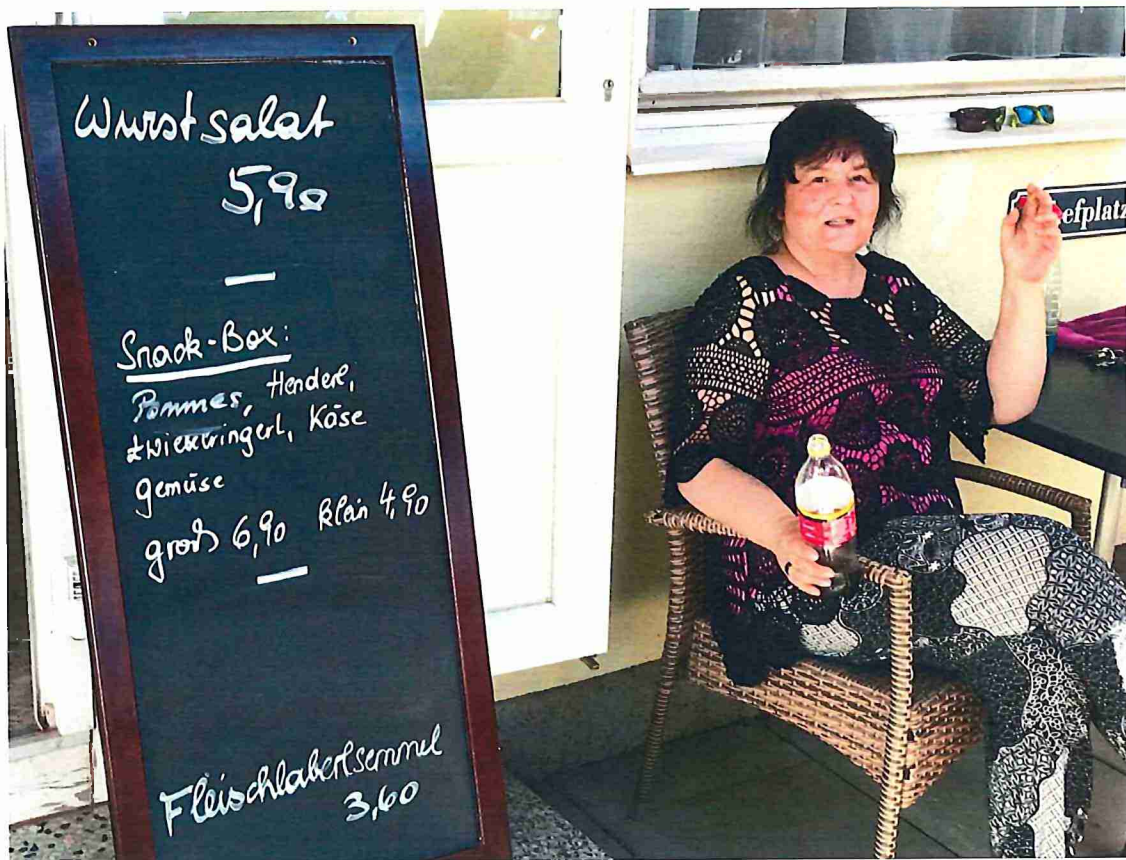 Wurstsalat
5,90
Snack-Box:
Pommes, Henderl,
Zwiebelringerl, Käse
gemüse
groß 6,90 klein 4,90
Fleischlaberlsemmel
3,60
efplatz